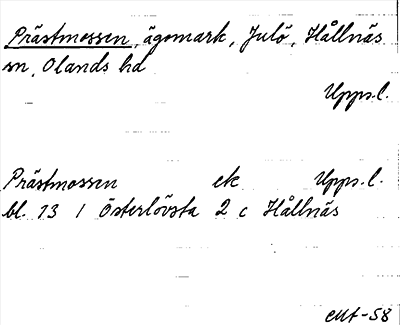 Prästmossen, ägomark, Julö, Hållnäs
sn, Olands hd
Upps.l.
Prästmossen ek Upps.l.
bl. 13 / Österlövsta 2 c Hållnäs
-58